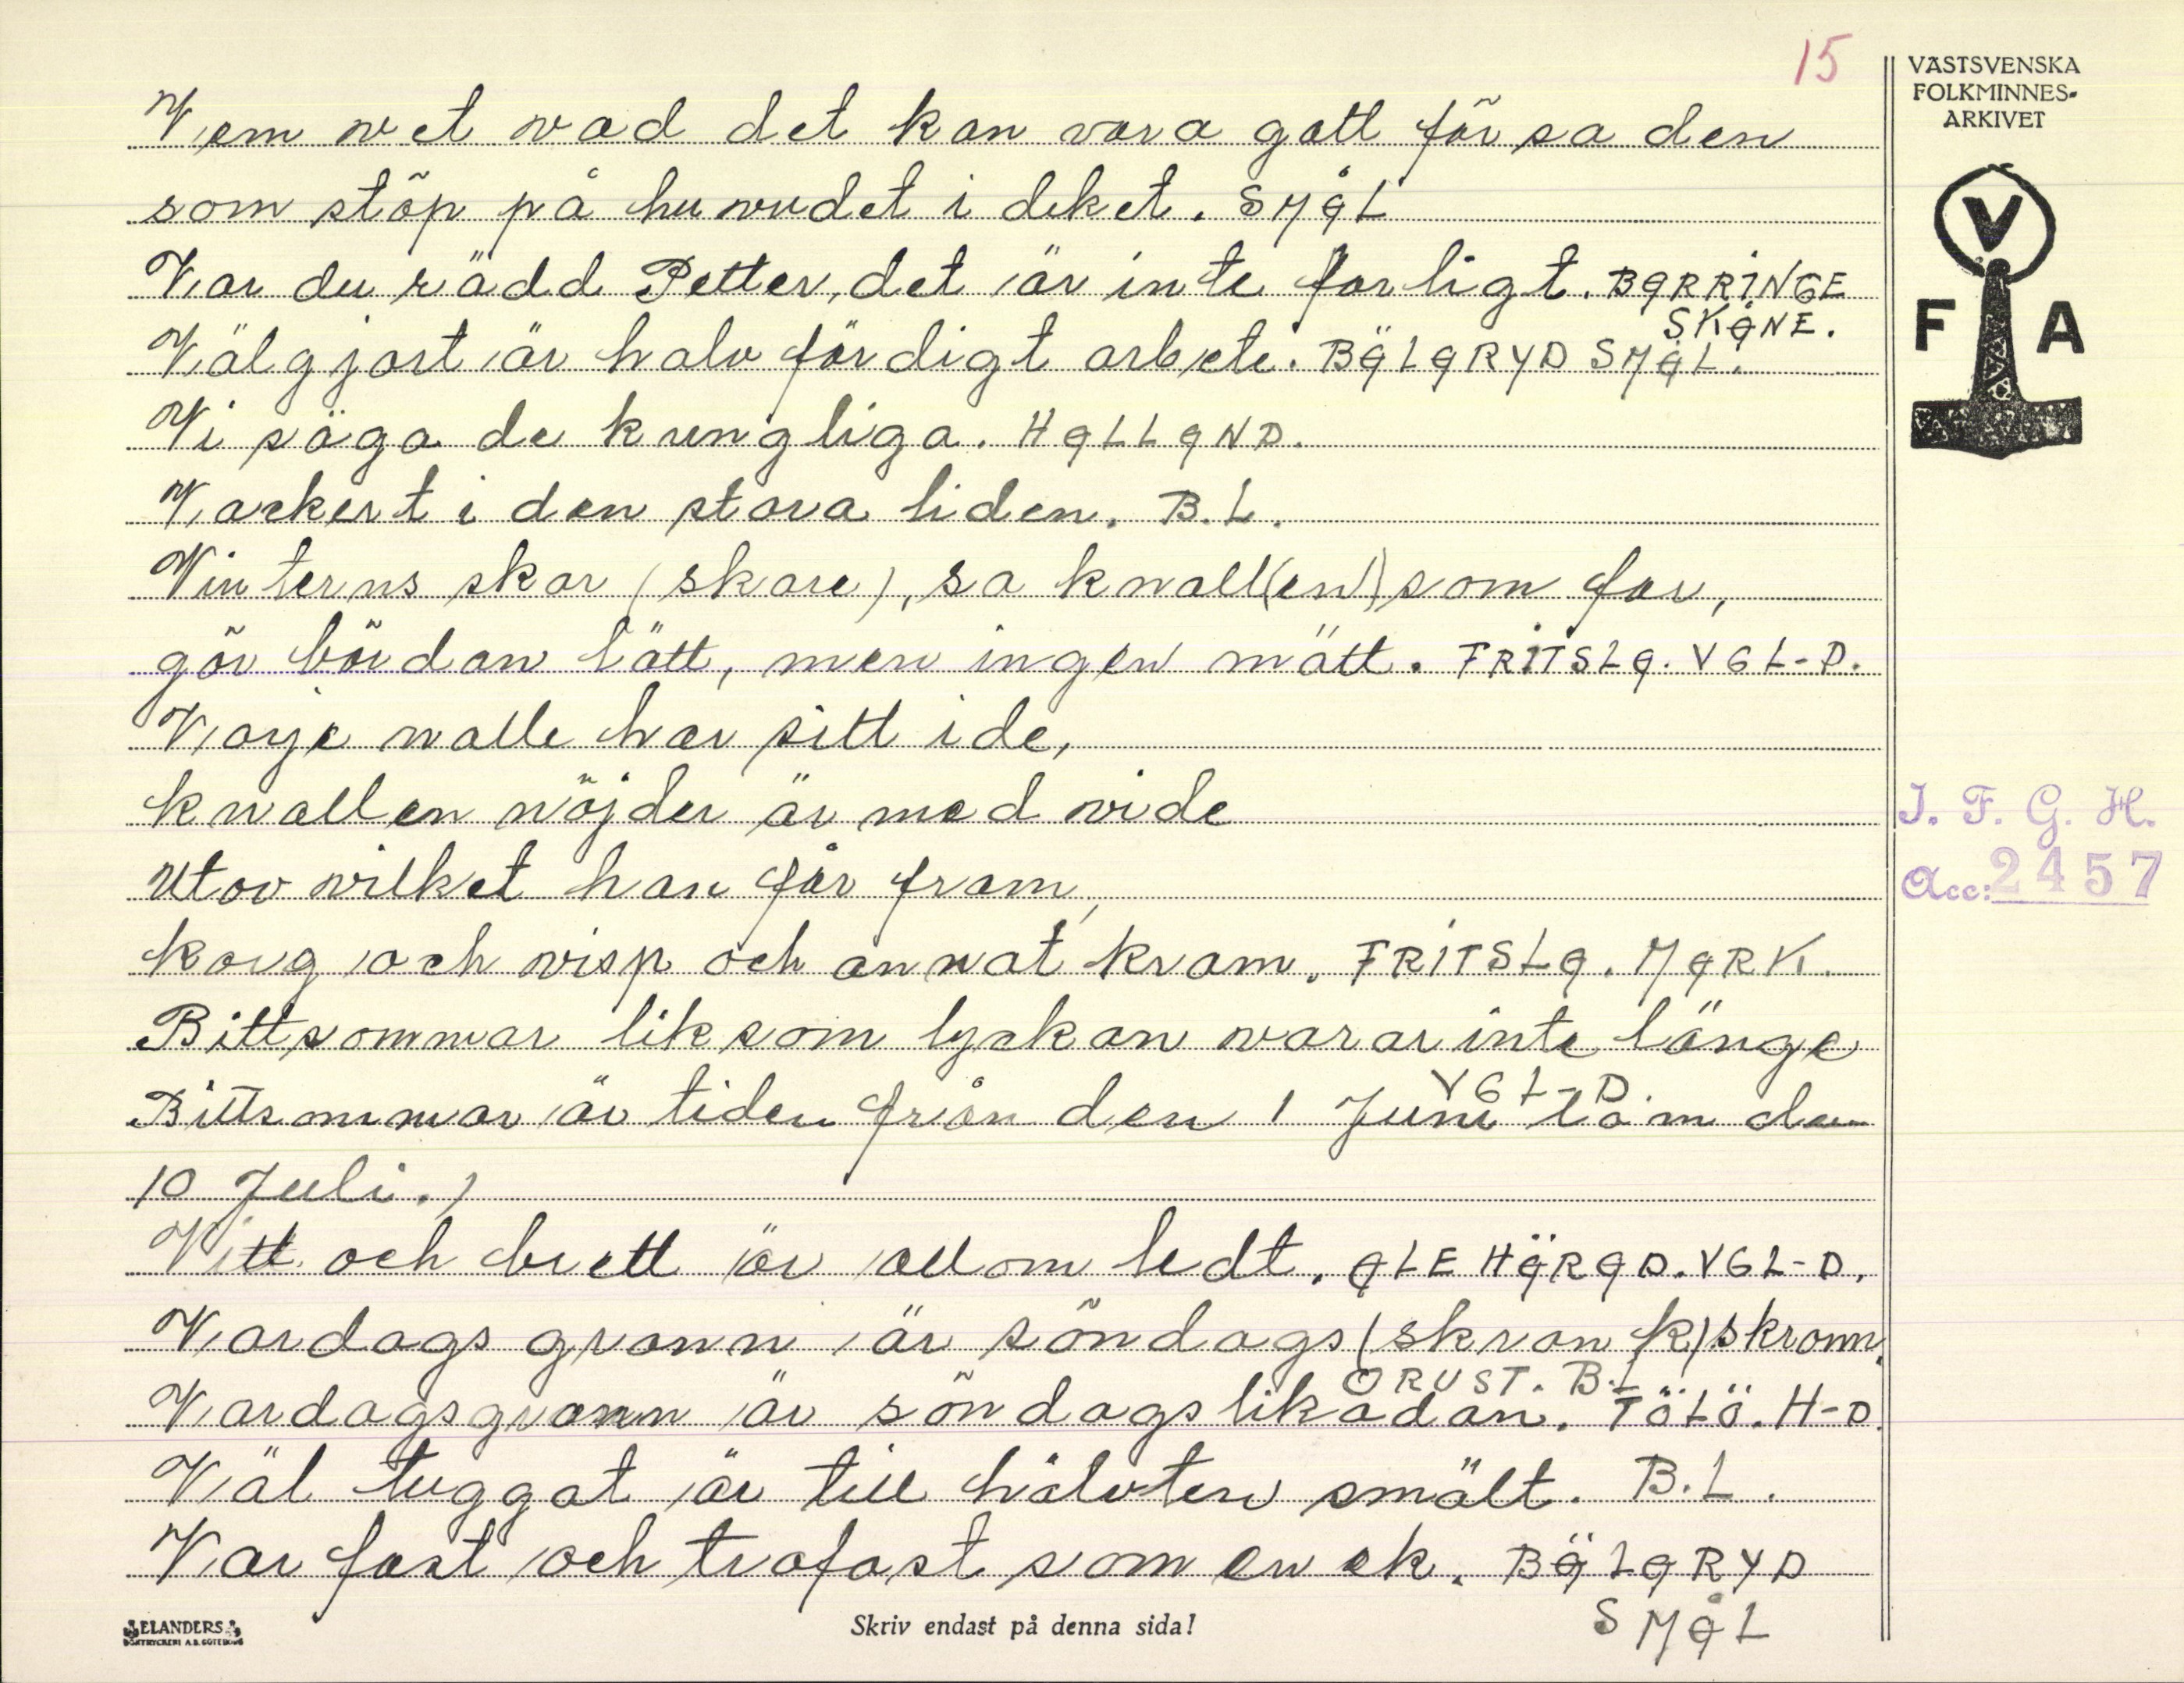 15
VÄSTSVENSKA
FOLKMINNES-
ARKIVET
V
F A
Vem vet vad det kan vara gott för sa den
som stöp på huvudet i diket. SMÅL
Var du rädd Petter, det är inte farligt. BARRINGE
SKÅNE.
Välgjort är halv färdigt arbete. BÄLARYD SMÅL.
Vi säga de kungliga. HALLAND.
Vackert i den stora liden. B.L.
Vinterns skar (skare), sa knall(en) som far,
gör bördan lätt, men ingen mätt. FRITSLA. VGL-D.
Varje nalle har sitt ide,
knallen nöjder är med vide
utav vilket han får fram,
korg och visp och annat kram. FRITSLA. MARK.
Bittsommar liksom lyckan varar inte länge
VGL-D.
Bittsommar är tiden från den 1 Juni tom den
10 Juli.)
Vitt och brett är allom ledt. ALE HÄRAD. VGL-D.
Vardags grann är söndags (skrank) skrann.
ORUST. B.L
Vardagsgrann är söndags likadan. TÖLÖ. H-D.
Väl tuggat är till hälvten smält. B.L.
Var fast och trofast som en ek. BÄLARYD
SMÅL
I. F. G. H.
Acc: 2457
ELANDERS
BOKTRYCKERI A.B. GÖTEBORG
Skriv endast på denna sida!